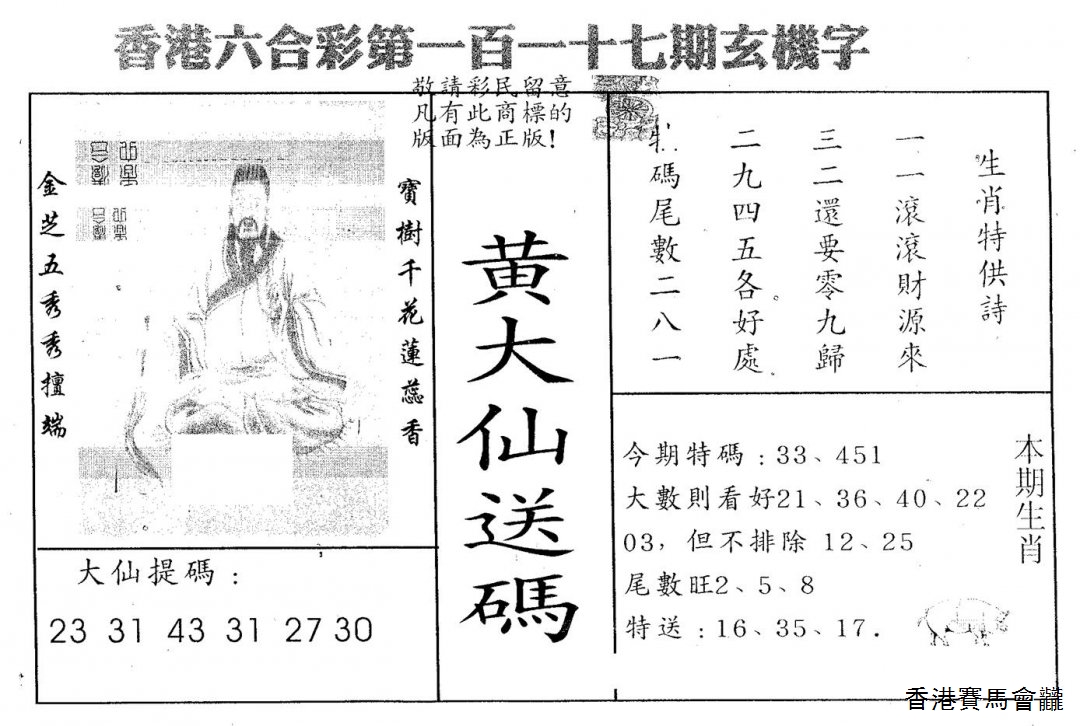 香港六合彩第一百一十七期玄機字
敬請彩民留意
凡有此商標的
版面為正版！
寶樹千花蓮蕊香
金芝五秀秀擅端
黄大仙送碼
生肖特供詩
一一滾滾財源來
三二還要零九歸
二九四五各好處
碼尾數二八一
大仙提碼：
23 31 43 31 27 30
本期生肖
今期特碼：33、451
大數則看好21、36、40、22
03，但不排除 12、25
尾數旺2、5、8
特送：16、35、17．
香港賽馬會